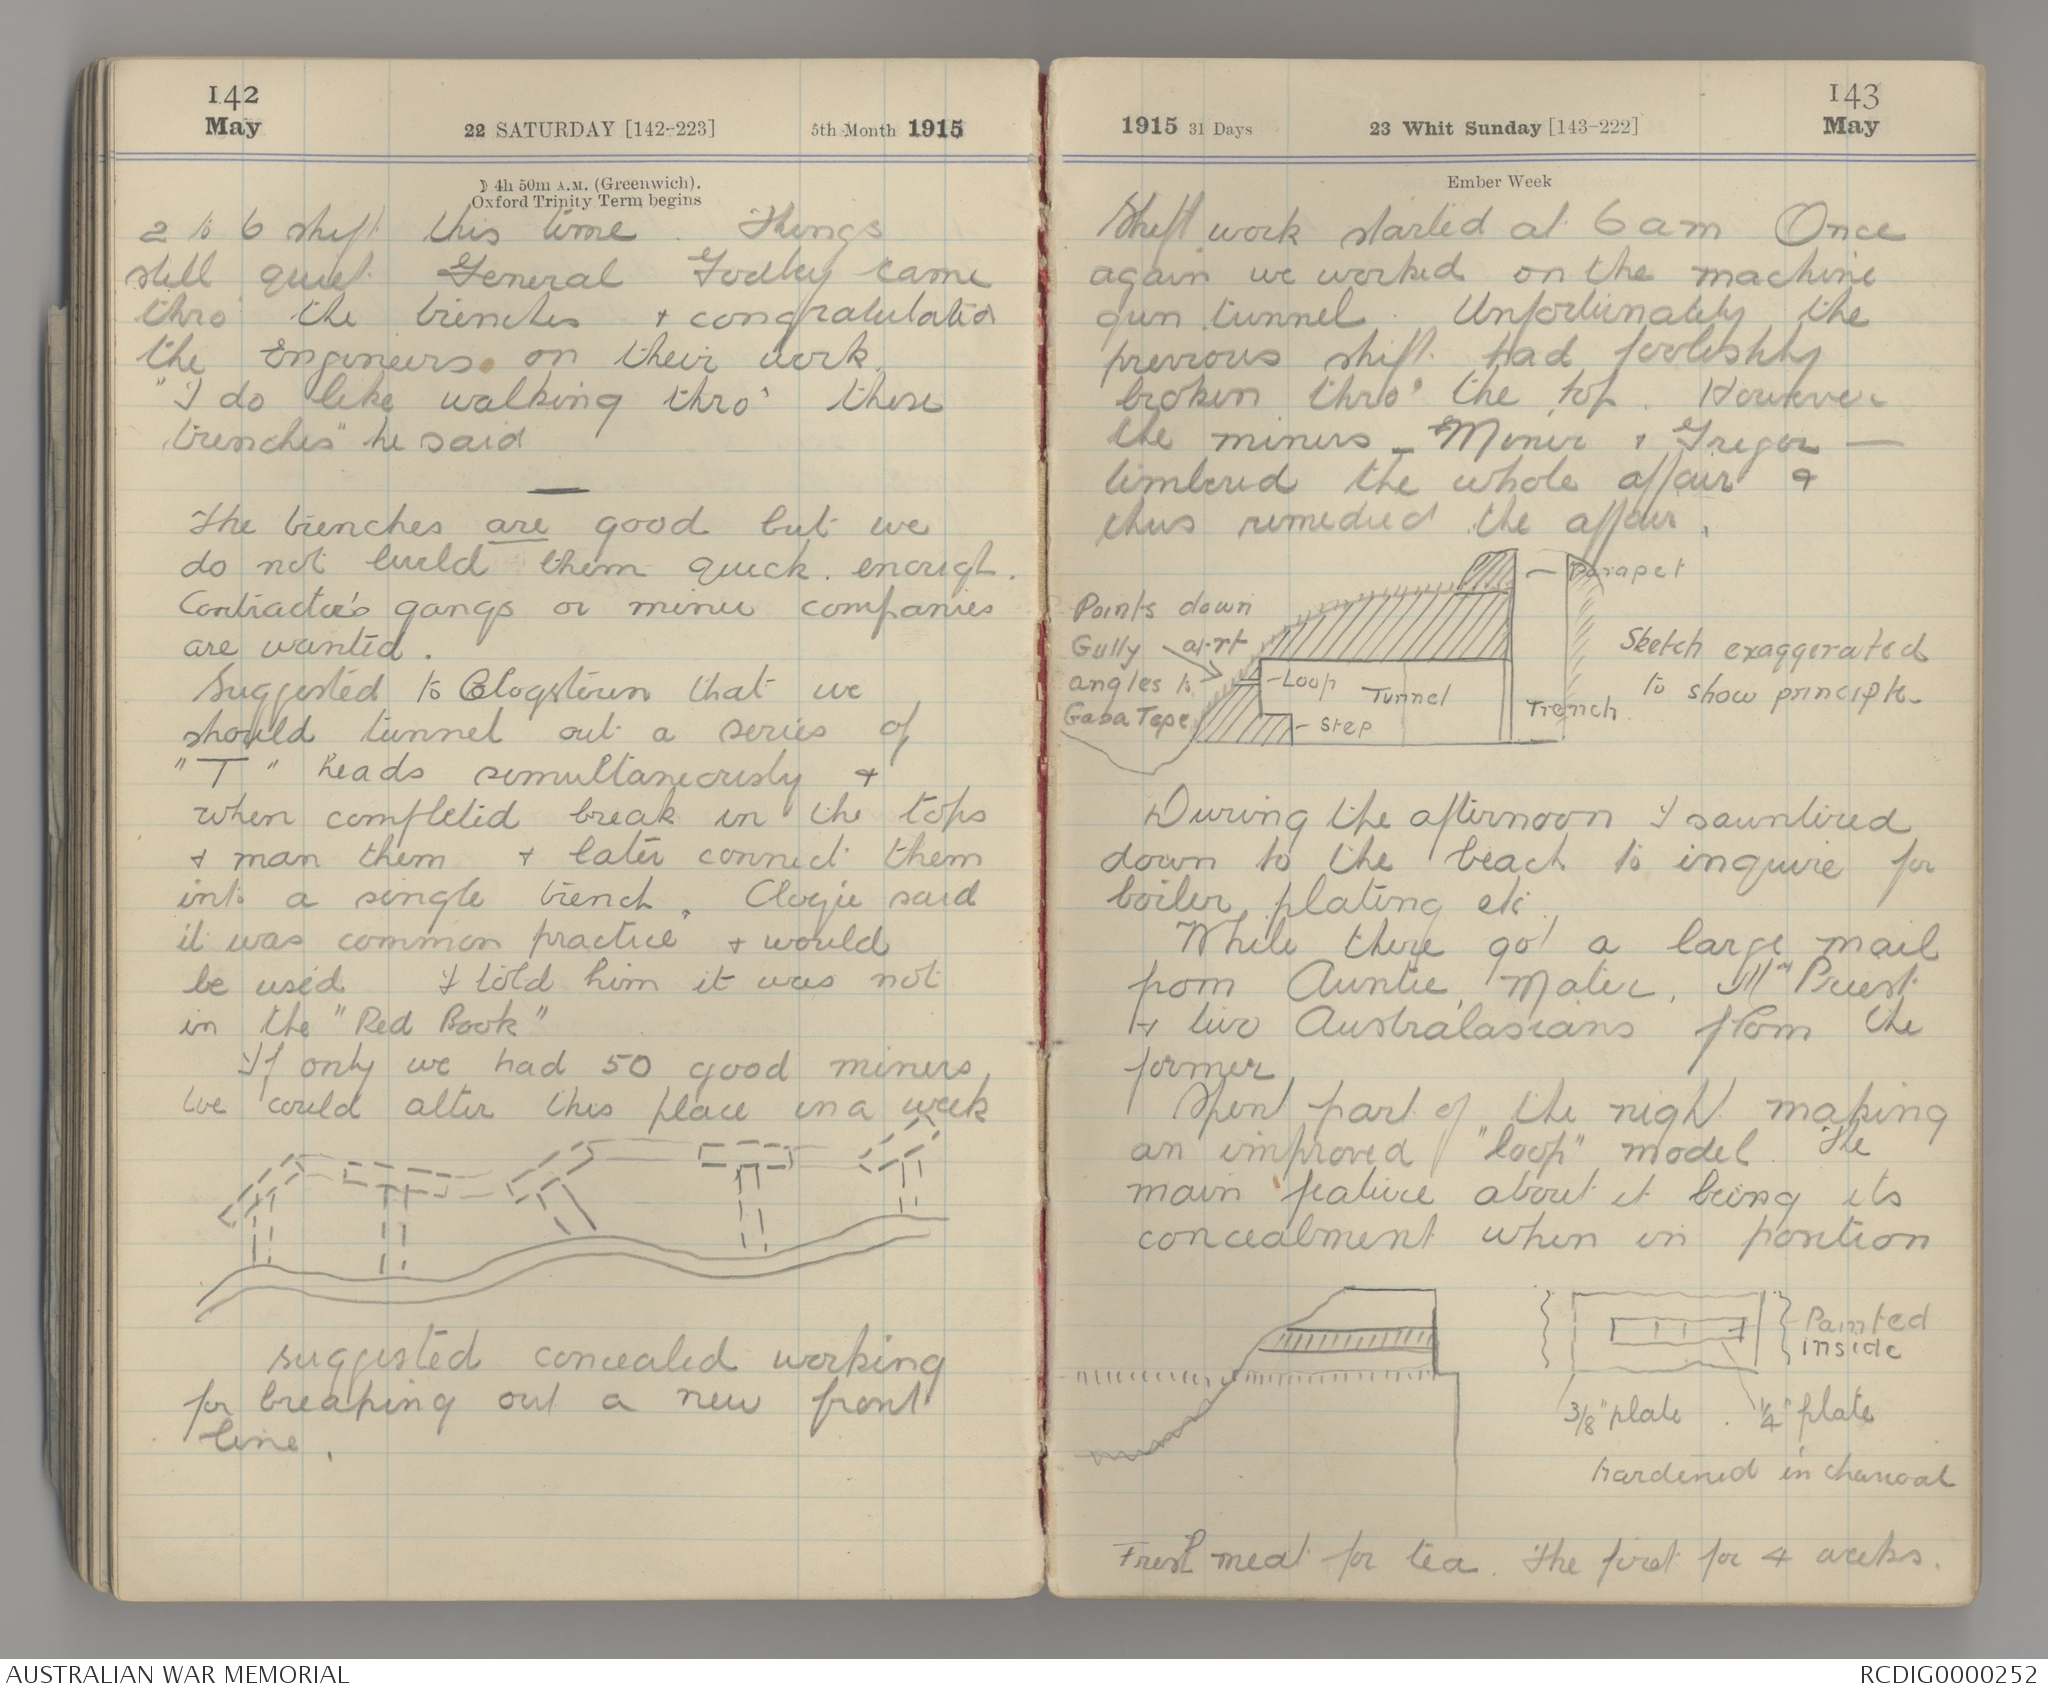 142
May
22 SATURDAY [142-223]
5th Month 1915
☽ 4h 50m A.M. (Greenwich).
Oxford Trinity Term begins
2 to 6 shift this time. Things
still quiet. General Godley came
thro' the trenches + congratulated
the Engineers on their work.
"I do like walking thro' these
trenches" he said
The trenches are good but we
do not build them quick enough.
Contractor's gangs or miner companies
are wanted.
Suggested to Clogstoun that we
should tunnel out a series of
"T" heads simultaneously +
when completed break in the tops
+ man them + later connect them
into a single trench. Clogie said
it was "common practice" + would
be used I told him it was not
in the "Red Book"
If only we had 50 good miners,
we could alter this place in a week
suggested concealed working
for breaking out a new front
line.
1915 31 Days
23 Whit Sunday [143-222]
143
May
Ember Week
Shift work started at 6 am Once
again we worked on the machine
gun tunnel. Unfortunately the
previous shift had foolishly
broken thro' the top. However
the miners - Moner + Gregor -
timbered the whole affair &
thus remedied the affair.
Parapet
Points down
Gully at rt
angles to
Gaba Tepe
Loop
Tunnel
Step
Trench
Sketch exaggerated
to show principle
During the afternoon I sauntered
down to the beach to inquire for
boiler plating etc.
While there got a large mail
from Auntie, Mater, Priest
+ two Australasians from the
former
Spent part of the night making
an improved "loop" model. The
main feature about it being its
concealment when in position
Painted
inside
3/8" plate
1/4" plate
hardened in charcoal
Fresh meat for tea. The first for 4 weeks.
AUSTRALIAN WAR MEMORIAL
RCDIG0000252